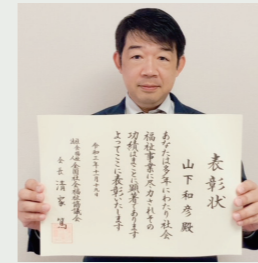 表彰状
山下和彦殿
あなたは多年にわたり社会
福祉事業に尽力されその
功績はまことに顕著であります
よってここに表彰いたします
令和二年十一月十九日
全国社会福祉協議会
会長 清家篤